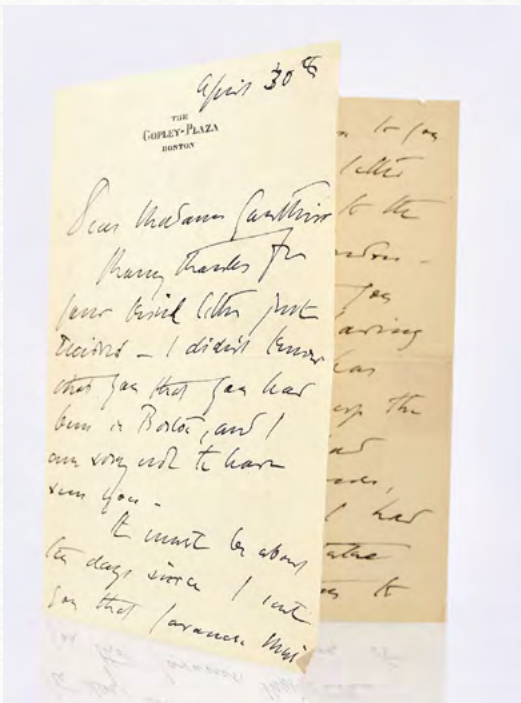 April 30th
THE
COPLEY-PLAZA
BOSTON
Dear Madame Gauthier
Many thanks for
your kind letter just
received – I didn't know
that you that you had
been in Boston, and I
am sorry not to have
seen you –
It must be about
ten days since I sent
you that Javanese
to you
letter
to the
you
having
has
the
had
I had
to